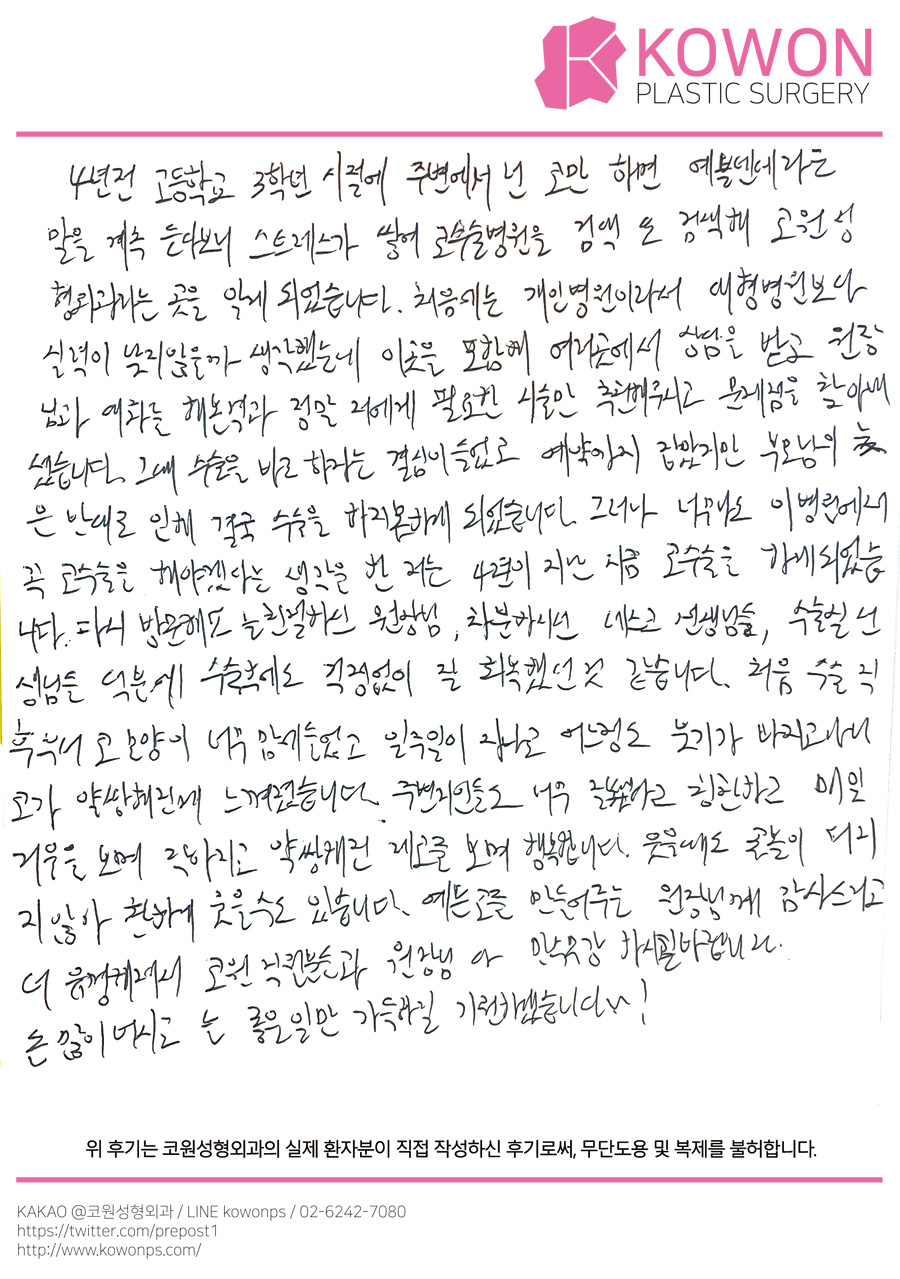 KOWON
PLASTIC SURGERY
4년전 고등학교 3학년 시절에 주변에서 넌 코만 하면 예쁠텐데라는
말을 계속 듣다보니 스트레스가 쌓여 코수술병원을 검색 또 검색해 코원성
형외과라는 곳을 알게 되었습니다. 처음에는 개인병원이라서 대형병원보다
실력이 낮지않을까 생각했는데 이곳을 포함해 여러곳에서 상담을 받고 원장
님과 대화를 해본결과 정말 저에게 필요한 시술만 추천해주시고 문제점을 찾아내
셨습니다. 그때 수술을 바로 하자는 결심이 예약까지 잡았지만 부모님의
은 반대로 인해 결국 수술을 하지못하게 되었습니다. 그러나 너무나도 이병원에서
꼭 코수술을 해야겠다는 생각을 한 저는 4년이 지난 지금 코수술을 하게되었습
니다. 다시 방문해도 늘친절하신 원장님, 차분하시던 데스크 선생님들, 수술실 선
생님들 덕분에 수술후에도 걱정없이 잘 회복했던것 같습니다. 처음 수술 직
후부터 코모양이 너무 맘에들었고 일주일이 지나고 어느정도 붓기가 빠지고나니
코가 얄쌍해진게 느껴졌습니다. 주변지인들도 너무 잘됐다고 칭찬하고 매일
거울을 보며 얄쌍해진 제코를 보며 행복합니다. 웃을때도 콧볼이 퍼지
지 않아 환하게 웃을수도 있습니다. 예쁜코를 만들어주는 원장님께 감사드리고
더 코원 직원분들과 원장님 다 만수무강 하시길바랍니다.
돈 많이버시고 늘 좋은일만 가득하길 기원하겠습니다^^!
위 후기는 코원성형외과의 실제 환자분이 직접 작성하신 후기로써, 무단도용 및 복제를 불허합니다.
KAKAO @코원성형외과 / LINE kowonps / 02-6242-7080
https://twitter.com/prepost1
http://www.kowonps.com/